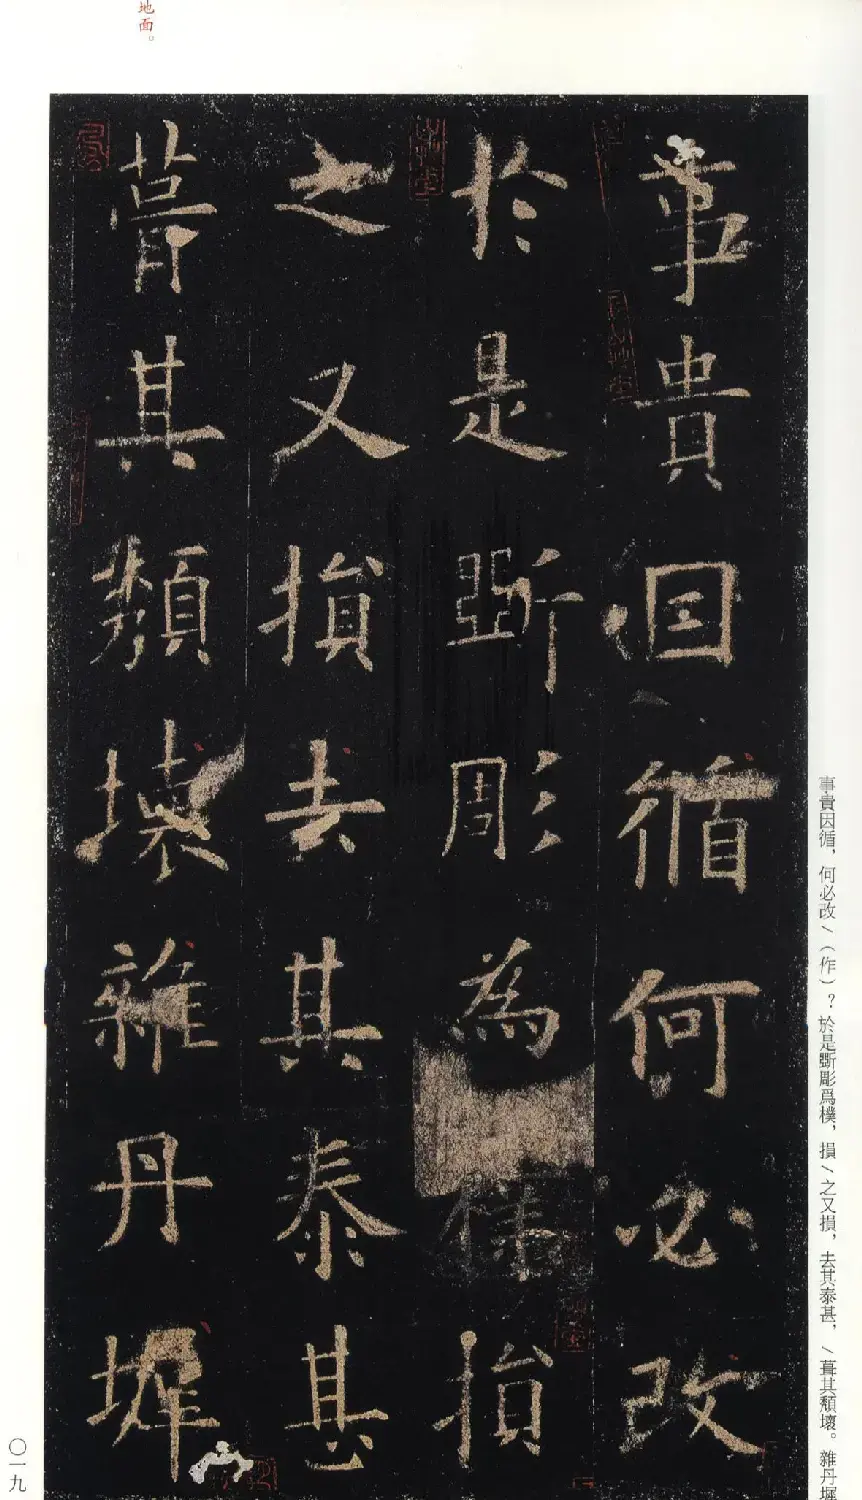 地面。
事貴因循何必改
於是斲彫為樸損
之又損去其泰甚
葺其頹壞雜丹墀
事貴因循，何必改／（作）？於是斲彫爲樸，損／之又損，去其泰甚，／葺其頹壞。雜丹墀
〇一九